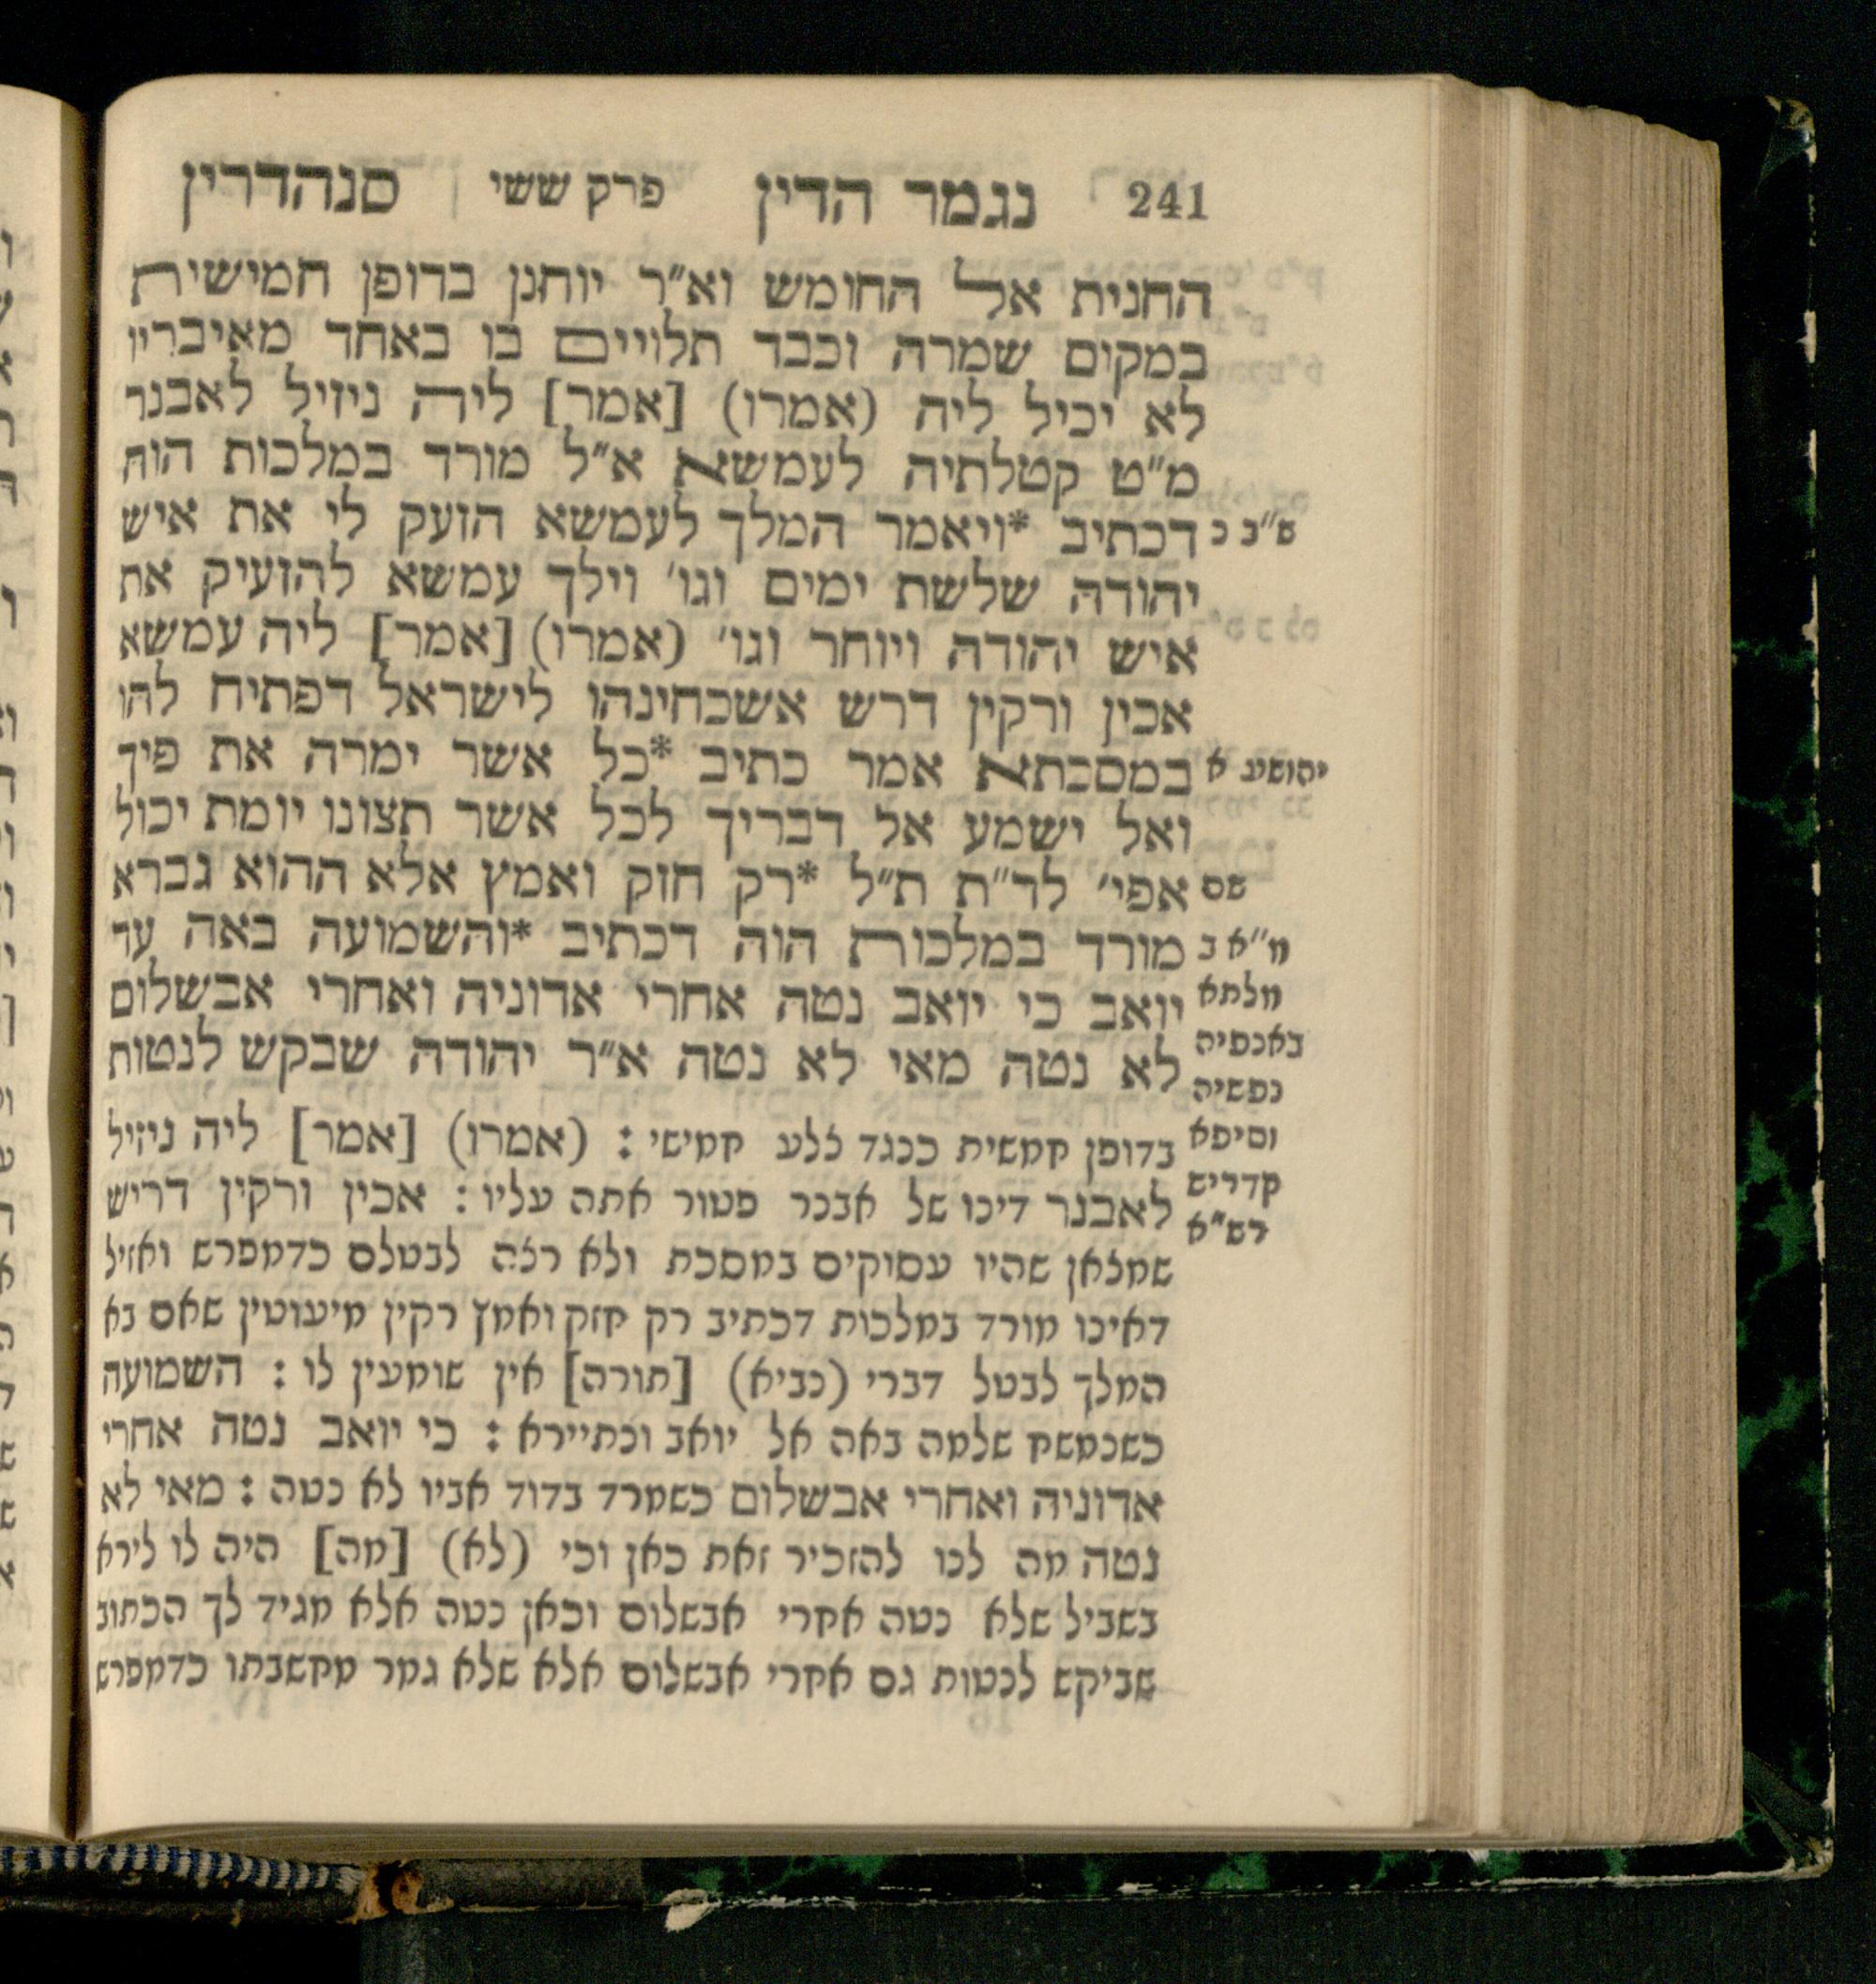 241 נגמר הדין פרק ששי סנהדרין
החנית אל החומש וא״ר יוחנן בדופן חמישית
במקום שמרה וכבד תלויים בו באחד מאיבריו
לא יכיל ליה (אמרו) [אמר] ליה ניזיל לאבנר
מ״ט קטלתיה לעמשא א״ל מורד במלכות הוה
ש״ב כ דכתיב *ויאמר המלך לעמשא הזעק לי את איש
יהודה שלשת ימים וגו׳ וילך עמשא להזעיק את
איש יהודה ויוחר וגו׳ (אמרו) [אמר] ליה עמשא
אכין ורקין דרש אשכחינהו לישראל דפתיח להו
יהושע א במסכתא אמר כתיב *כל אשר ימרה את פיך
ואל ישמע אל דבריך לכל אשר תצונו יומת יכול
שם אפי׳ לד״ת ת״ל *רק חזק ואמץ אלא ההוא גברא
מ״א ב מורד במלכות הוה דכתיב *והשמועה באה עד
מלתא יואב כי יואב נטה אחרי אדוניה ואחרי אבשלום
באנפיה לא נטה מאי לא נטה א״ר יהודה שבקש לנטות
נפשיה
וסיפא בדופן חמשית כנגד צלע חמישי : (אמרו) [אמר] ליה ניזיל
קדריש לאבנר דינו של אבנר פטור אתה עליו : אכין ורקין דריש
רש״א
שמצאן שהיו עסוקים במסכת ולא רצה לבטלם כדמפרש ואזיל
דאינו מורד במלכות דכתיב רק חזק ואמץ רקין מיעוטין שאם בא
המלך לבטל דברי (נביא) [תורה] אין שומעין לו : השמועה
כשנמשח שלמה באה אל יואב ונתיירא : כי יואב נטה אחרי
אדוניה ואחרי אבשלום כשמרד בדוד אביו לא נטה : מאי לא
נטה מה לנו להזכיר זאת כאן וכי (לא) [מה] היה לו לירא
בשביל שלא נטה אחרי אבשלום וכאן נטה אלא מגיד לך הכתוב
שביקש לנטות גם אחרי אבשלום אלא שלא גמר מחשבתו כדמפרש